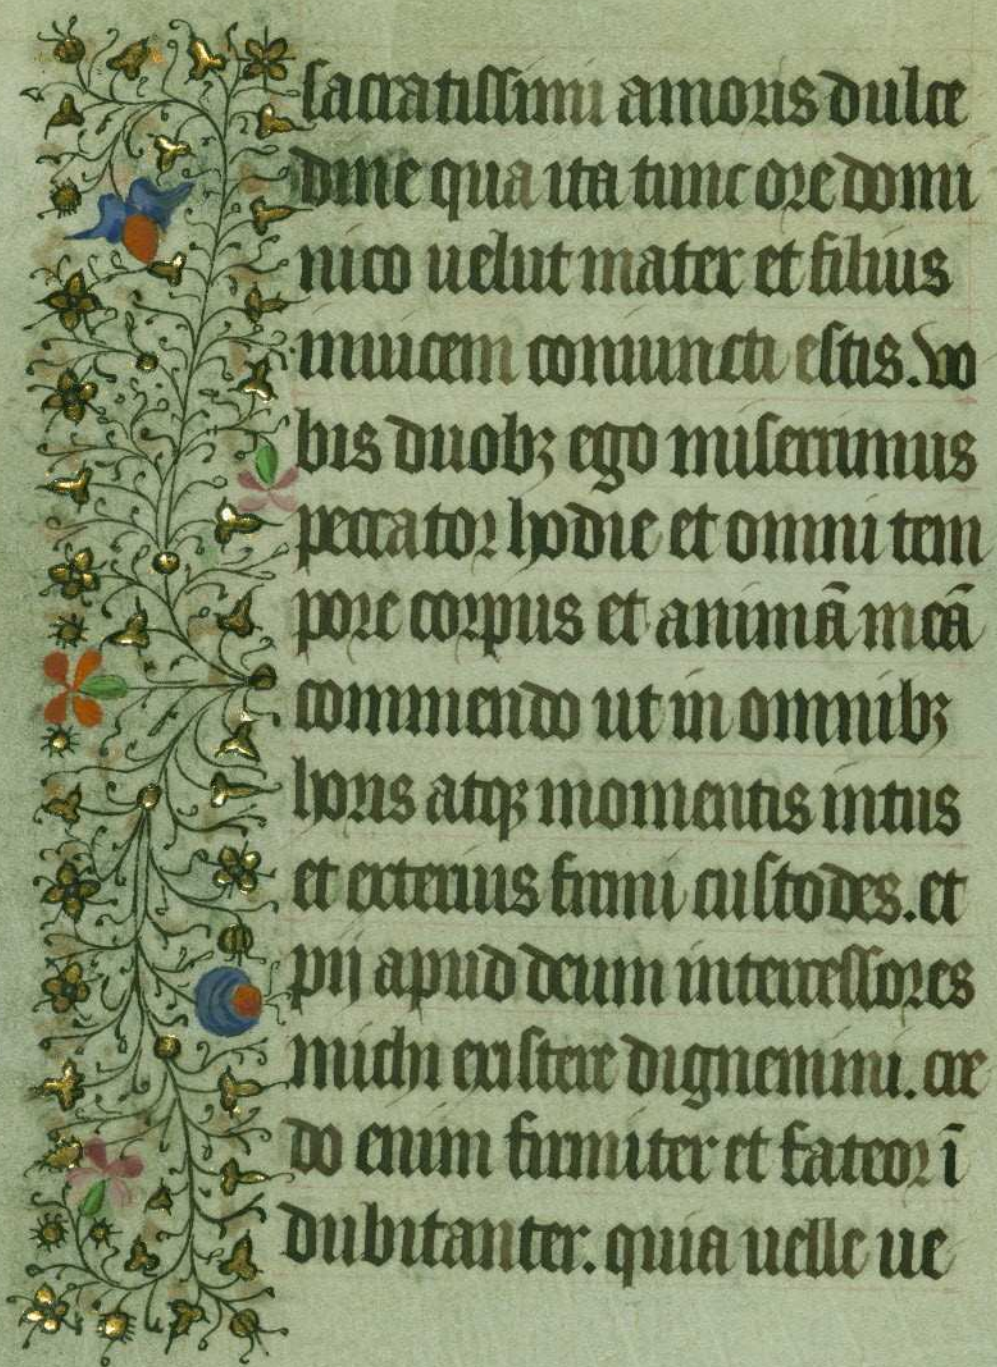 sacratissimi amoris dulce
dine qua ita tunc ore domi
nico uelut mater et filius
inuicem coniuncti estis. vo
bis duobꝫ ego miserrimus
peccator hodie et omni tem
pore corpus et animā meā
commendo ut in omnibꝫ
horis atqꝫ momentis intus
et exterius firmi custodes. et
pij apud deum intercessores
michi existere dignemini. cre
do enim firmiter et fateor ī
dubitanter. quia uelle ue